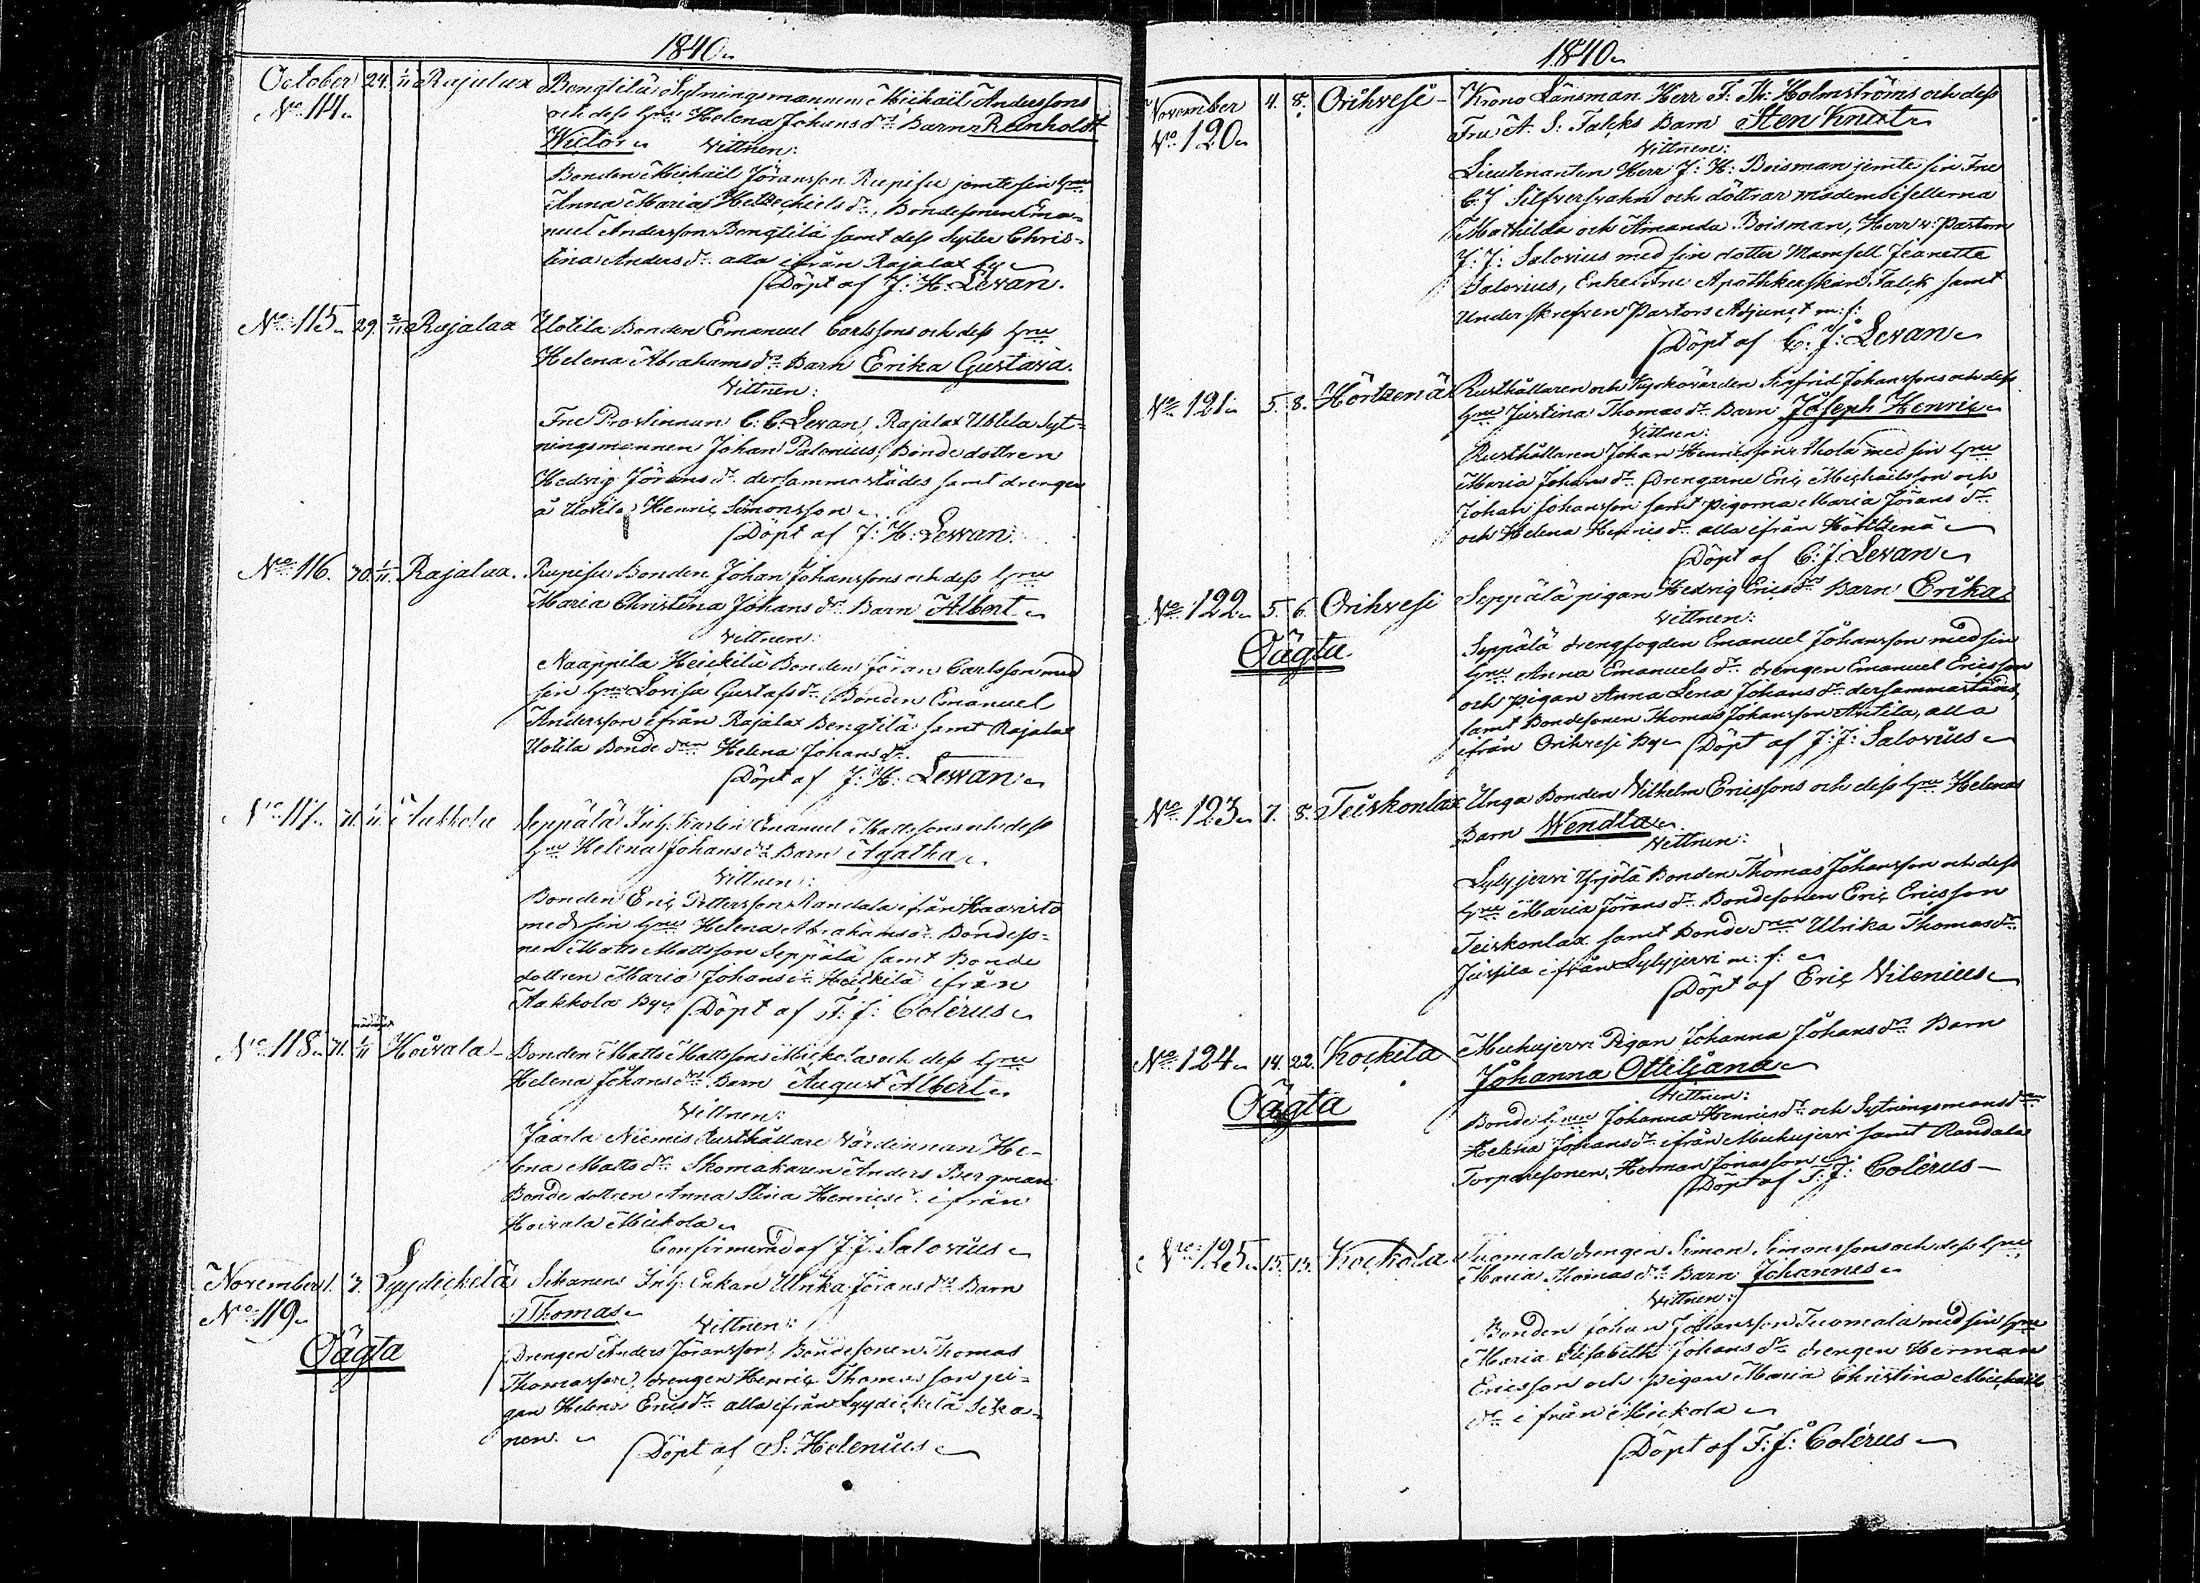 1840
October 24. 1/11 Rajalax Bengtilä Sytningsmannen Michaël Anderssons
No 114. och dess Hru Helena Johans dr Barn Reinholdt
Victor
Vittnen:
Bonden Michaël Jöransson Rupisu jemte sin Hru
Anna Maria Hetzechiels dr, Bondesonen Ema-
nuel Andersson Bengtilä samt dess Syster Chris-
tina Anders dr alla ifrån Rajalax by
Döpt af J: H: Levan.
No 115 29. 2/11 Rajalax Uotila Bonden Emanuel Carlssons och dess Hru
Helena Abrahams dr Barn Erika Gustava.
Vittnen:
Fru Prostinnan C: C: Levan, Rajalax Uotila Syt-
ningsmannen Johan Palonius, Bondedottren
Hedvig Jörans dr dersammastädes samt drengen
å Uotila Henric Simonsson
Döpt af J: H: Levan.
No 116. 30. 1/11 Rajalax. Rupisu Bonden Johan Johanssons och dess Hru
Maria Christina Johans dr Barn Albert
Vittnen:
Naappila Heickilä Bonden Jöran Carlsson med
sin Hru Lovisa Gustafs dr Bonden Emanuel
Andersson ifrån Rajalax Bengtilä samt Rajalax
Uotila Bonde dren Helena Johans dr
Döpt af J: H: Levan
No 117 31. 1/11 Aakkola Seppälä Inh. Karlen Emanuel Mattssons och dess
Hru Helena Johans dr Barn Agatha
Vittnen:
Bonden Eric Pettersson Randala ifrån Haavisto
med sin Hru Helena Abrahams dr Bondeso-
nen Matts Mattsson Seppälä samt Bonde
dottren Maria Johans dr Heickilä ifrån
Aakkola By Döpt af F: J: Colérus
No 118 31. 1/11 Hoivala Bonden Matts Mattssons Mickola och dess Hru
Helena Johans dr Barn August Albert
Vittnen:
Jaarla Niemis Rusthållare Värdinnan He-
lena Matts dr Skomakaren Anders Bergman
Bonde dottren Anna Stina Henrics dr ifrån
Hoivala Mickola
Confirmerad af J: J: Salovius
November 1. 7. Lyydickelä Sikanens Inh. Enkan Ulrika Jörans dr Barn
No 119 Thomas
Vittnen:
Oägta Drengen Anders Jöransson, Bondesonen Thomas
Thomasson, drengen Henric Thomasson pi-
gan Helena Erics dr alla ifrån Lyydickelä Sika-
nen.
Döpt af S: Helenius
1840
November 4. 8. Orihvesi Krono Länsman Herr F. Th: Holmströms och dess
No 120 Fru A: S: Falcks Barn Sten Knut
Vittnen:
Lieutenanten Herr J: H: Boisman jemte sin Fru
C: J Silfversvahn och döttrar mademoisellerna
Mathilda och Amanda Boisman, Herr v: Pastorn
J: J: Salovius med sin dotter Mamsell Jeanette
Salovius, Enke Fru Apothekerskan Falck samt
Underskrefven Pastors Adjunct m: f:
Döpt af C: J: Levan
No 121 5. 8. Hörtzenä Rusthållaren och Kyrkovärden Sigfrid Johanssons och dess
Hru Justina Thomas dr Barn Joseph Henric
Vittnen:
Rusthållaren Johan Henricsson Ahola med sin Hru
Maria Johans dr Drengarne Eric Michaelsson och
Johan Johansson samt pigorna Maria Jörans dr
och Helena Henrics dr alla ifrån Hörtzenä
Döpt af C: J. Levan
No 122 5. 6. Orihvesi Seppälä pigan Hedvig Erics dr Barn Erika
Vittnen:
Oägta Seppälä drengfogden Emanuel Johansson med sin
Hru Anna Emanuels dr drengen Emanuel Ericsson
och pigan Anna Lena Johans dr dersammastäds,
samt Bondesonen Thomas Johansson Antila, alla
ifrån Orihvesi by Döpt af J: J: Salovius
No 123 7. 8. Teiskonlax Unga Bonden Wilhelm Ericssons och dess Hru Helenas
Barn Wendla
Vittnen:
Lylyjervi Yrjölä Bonden Thomas Johansson och dess
Hru Maria Jörans dr Bondesonen Eric Ericsson
Teiskonlax samt Bonde dren Ulrika Thomas dr
Jussila ifrån Lylyjervi m: f:
Döpt af Eric Vilenius
No 124 14. 22. Kockila Muhujervi Pigan Johanna Johans dr Barn
Johanna Ottiljana
Vittnen:
Oägta Bonde Hrun Johanna Henrics dr och Sytningsmans dren
Helena Johans dr ifrån Muhujervi samt Randala
Torparesonen Herman Jonasson
Döpt af F: J: Colérus
No 125 15. 15. Kockola Tuomala drengen Simon Simonssons och dess Hru
Maria Thomas dr Barn Johannes
Vittnen:
Bonden Johan Johansson Tuomala med sin Hru
Maria Elisabeth Johans dr drengen Herman
Ericsson och pigan Maria Christina Michaels
dr ifrån Mickola
Döpt af F: J: Colérus